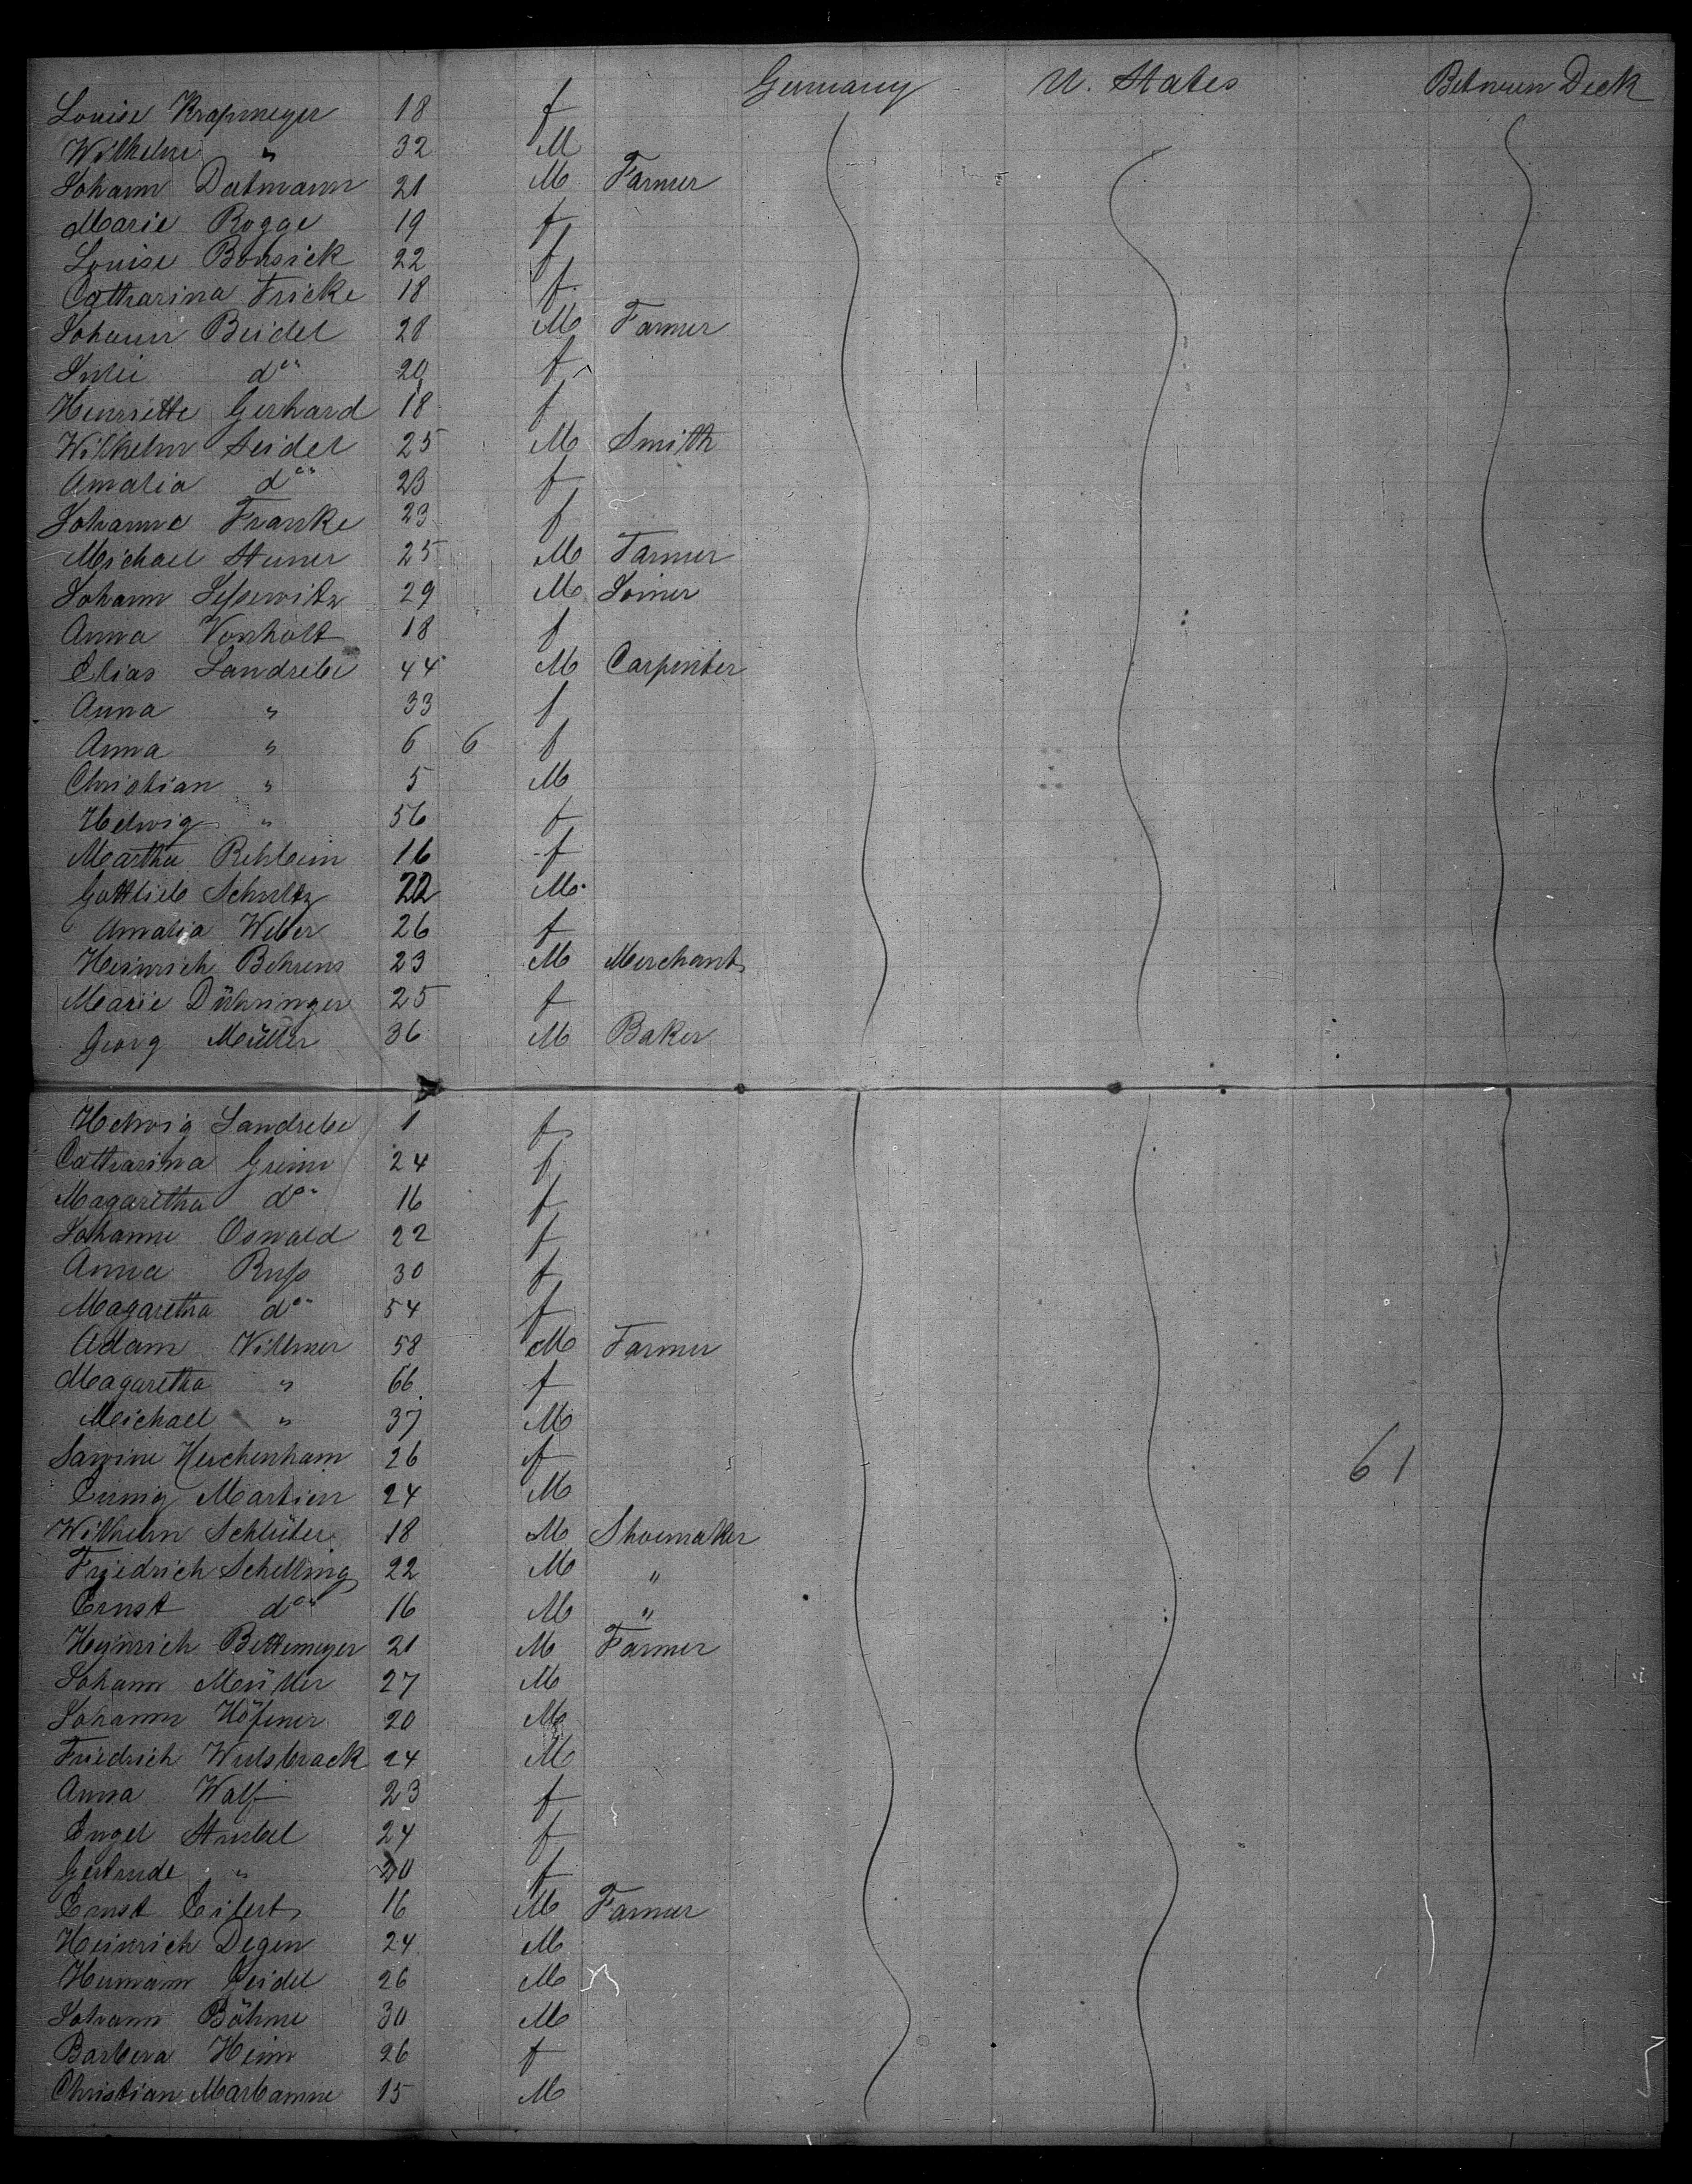 Germany U. States Between Deck
Louise Krapmeyer 18 f
Wilhelm " 32 M
Johann Dutmann 21 M Farmer
Marie Rogge 19 f
Louise Bonsick 22 f
Catharina Fricke 18 f
Johann Beidel 28 M Farmer
do 20 f
Henriette Gerhard 18 f
Wilhelm Seidel 25 M Smith
Amalia do 23 f
Johanne Franke 23 f
Michael Steiner 25 M Farmer
Johann 29 M Joiner
Anna Vonholt 18 f
Elias Landrebe 44 M Carpenter
Anna " 33 f
Anna " 6 6 f
Christian " 5 M
Hedwig " 56 f
Martha Rehbein 16 f
Gottlieb Schultz 22 M
Amalia Weber 26 f
Heinrich Behrens 23 M Merchant
Marie Dühringer 25 f
Georg Müller 36 M Baker
Hedwig Landrebe 1 f
Catharina Grein 24 f
Magaretha do 16 f
Johanne Oswald 22 f
Anna Ruß 30 f
Magaretha do 54 f
Adam Villmer 58 M Farmer
Magaretha " 66 f
Michael " 37 M
Herchenham 26 f 61
Martien 24 M
Wilhelm Schlüter 18 M Shoemaker
Friedrich Schelling 22 M "
Ernst do 16 M "
Heinrich Bettemeyer 21 M Farmer
Johann Müller 27 M
Johann Höfener 20 M
Friedrich Wulsbrack 24 M
Anna Wolf 23 f
Engel Strubel 24 f
Gertrude " 20 f
Ernst Eilert 16 M Farmer
Heinrich Degen 24 M
Hermann Seidel 26 M
Johann Böhme 30 M
Barbera Heim 26 f
Christian Marbanne 15 M